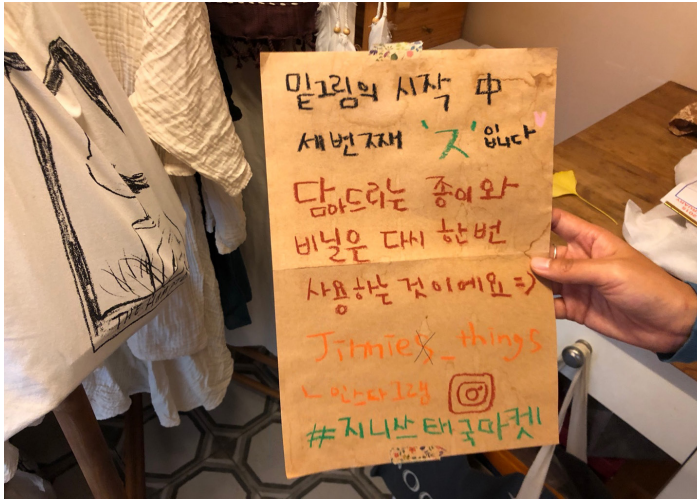 밑그림의 시작 中
세번째 'ㅈ' 입니다
담아드리는 종이와
비닐은 다시 한번
사용하는 것이에요 =)
Jinnies_things
ㄴ인스타그램
#지니쓰태국마켓